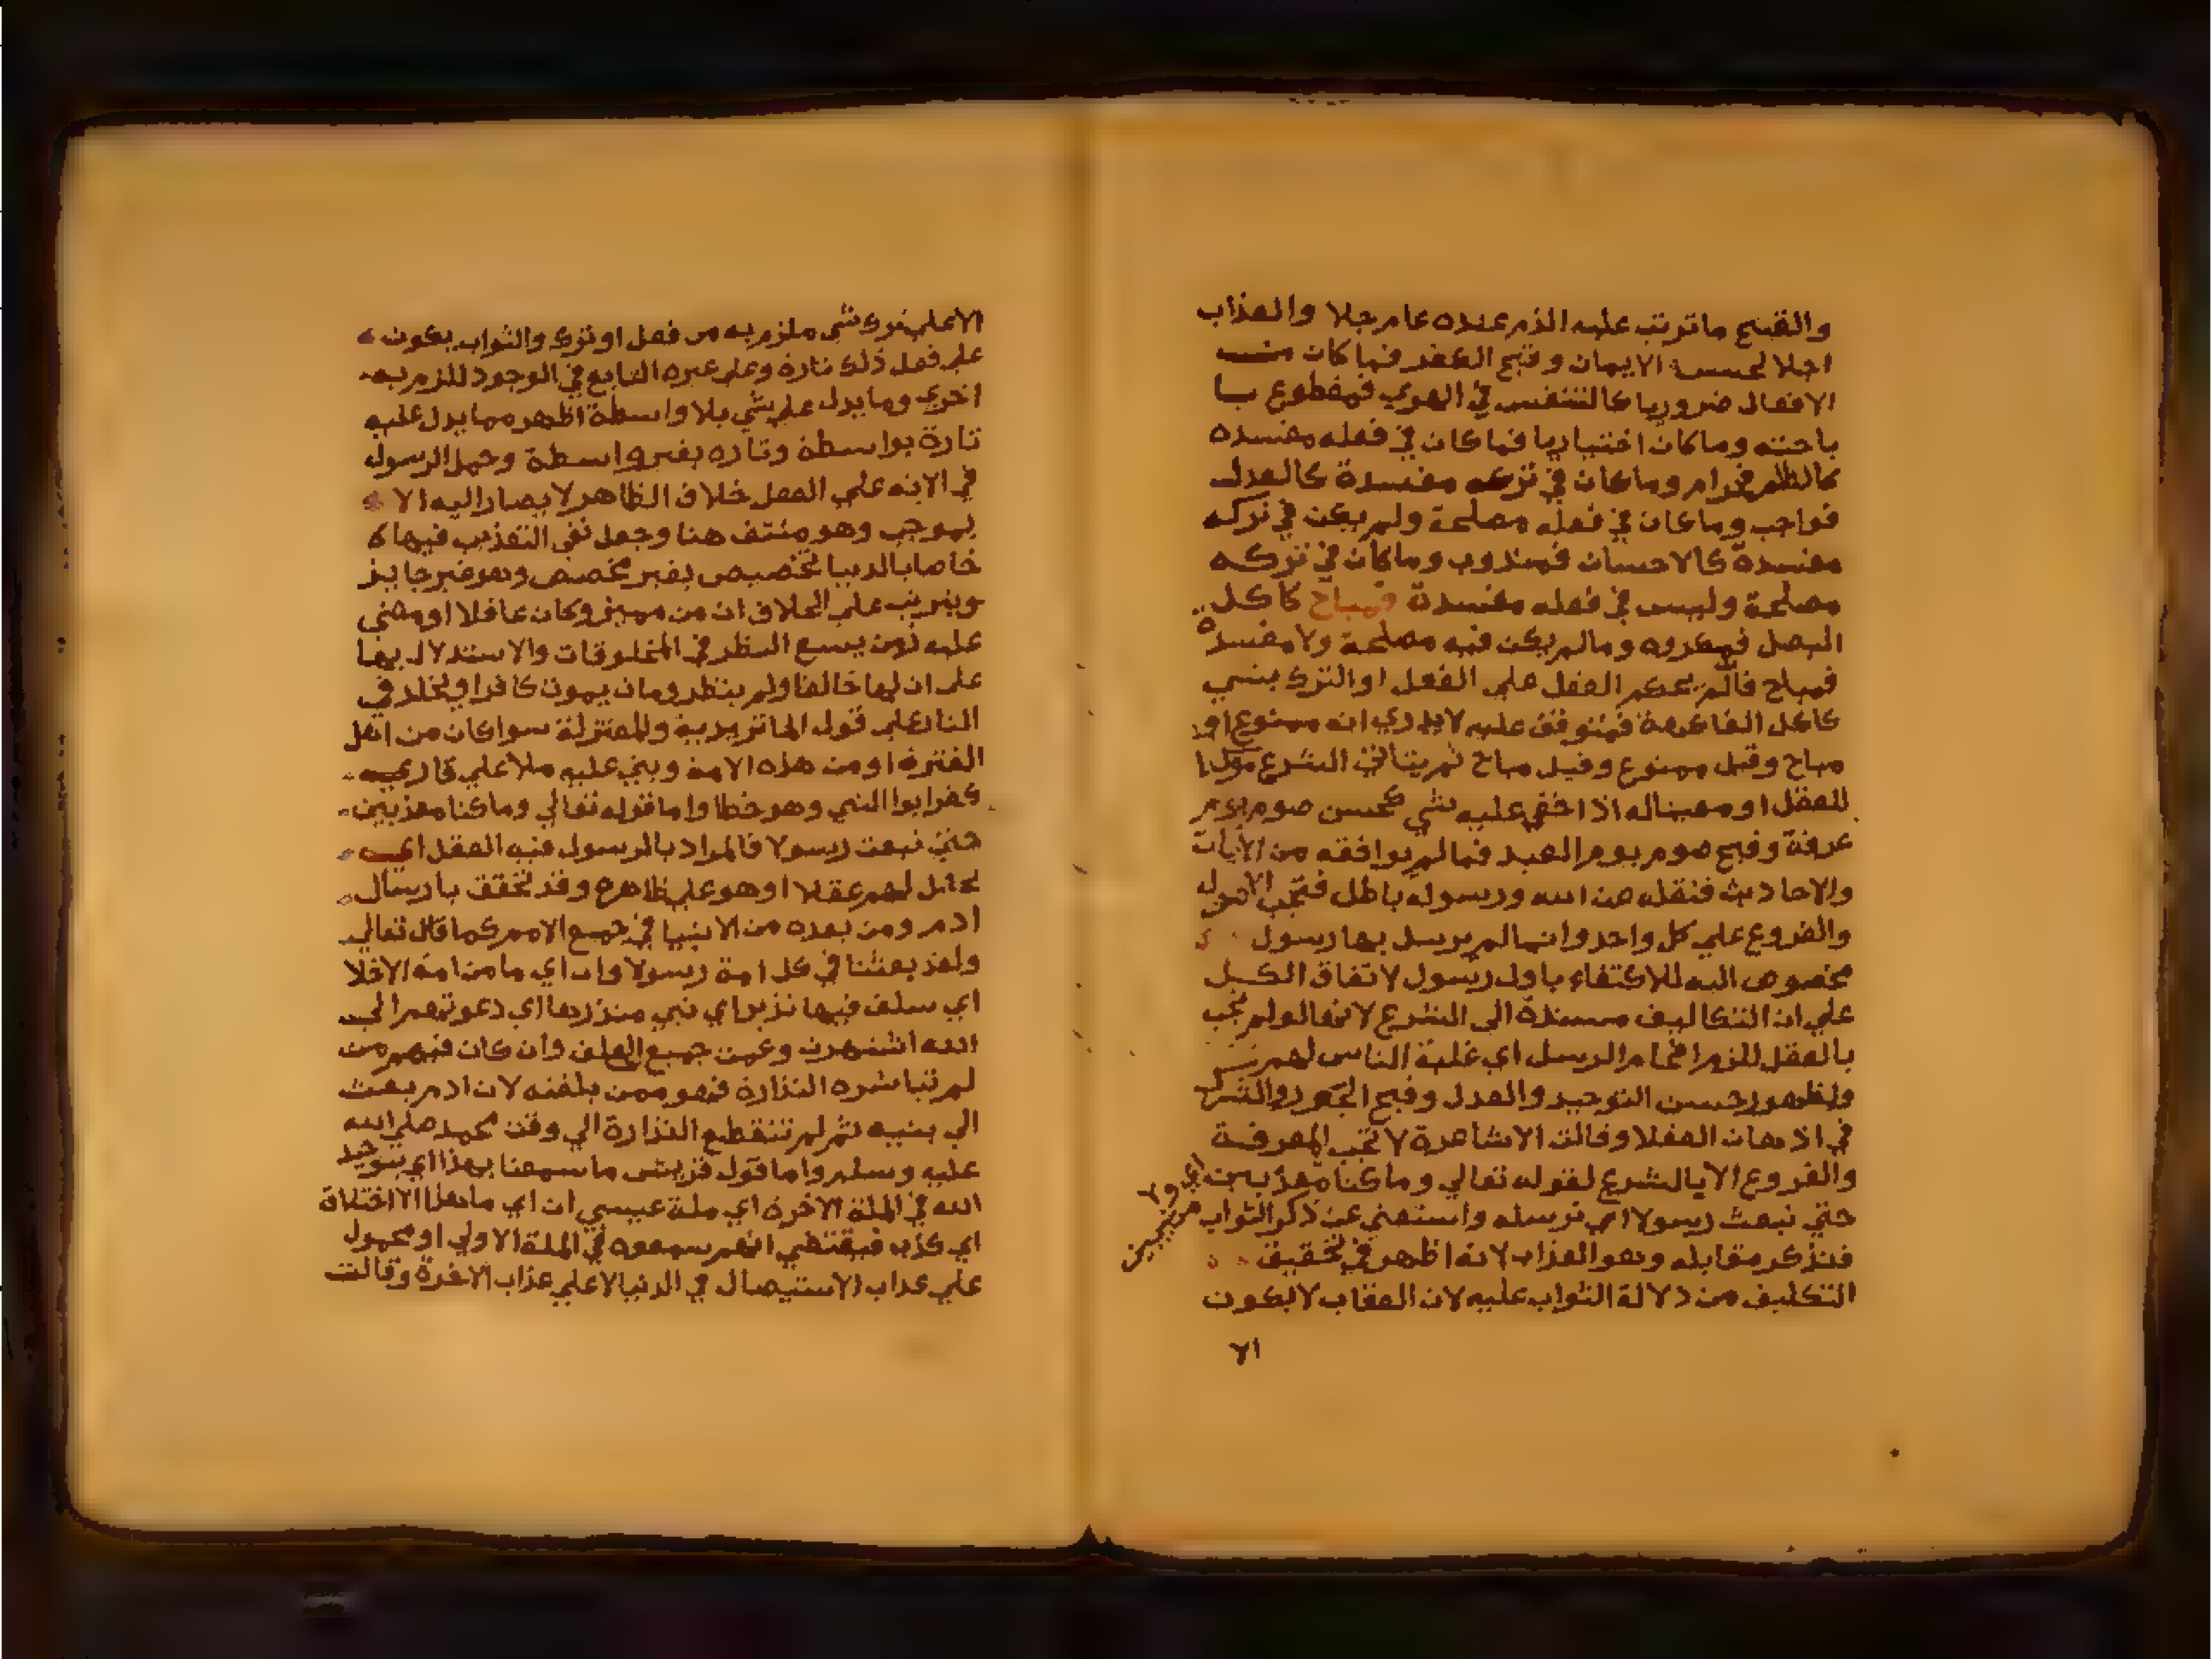 والقبيح ما ترتب عليه الذم عنده عاجلا والعذاب
اجلا لحسن الايمان وقبح الكفر فما كان من
الافعال ضروريا كالتنفس في الهوي فمقطوع با
باحته وما كان اختياريا فما كان في فعله مفسده
كالظلم فحرام وما كان في تركه مفسدة كالعدل
فواجب وما كان في فعله مصلحة ولم يكن في تركه
مفسدة كالاحسان فمندوب وما كان في تركه
مصلحة وليس في فعله مفسدة فمباح كاكل
البصل فمكروه ومالم يكن فيه مصلحة ولا مفسدة
فمباح فالم يحكم العقل علي الفعل او الترك بشي
كاكل الفاكهة فمتوقف عليه لا يدري انه ممنوع او
مباح وقيل ممنوع وقيل مباح ثم يتاتي الشرع موكدا
للعقل او معيناله اذا خفي عليه شي كحسن صوم يوم
عرفة وقبح صوم يوم العيد فما لم يوافقه من الايات
والاحاديث فنقله عن الله ورسوله باطل فتجب الاصول
والفروع علي كل واحد وانما لم يرسل بها رسول
مخصوص اليه للاكتفاء باول رسول لاتفاق الكل
علي ان التكاليف مسندة الى الشرع لانها لو لم تجب
بالعقل للزم افحام الرسل اي غلبة الناس لهم
ولظهور حسن التوحيد والعدل وقبح الجور والشرك
في اذهان العقلا وقالت الاشاعرة لا تجب المعرفة
والفروع الا بالشرع لقوله تعالي وما كنا معذبين اي ولا
مريبين
حتي نبعث رسولا اي نرسله واستغني عن ذكر الثواب
فتذكر مقابله وهو العذاب لانه اظهر في تحقيق
التكليف من دلالة الثواب عليه لان العقاب لا يكون
الا
الا علي ترك شي ملزم به من فعل او ترك والثواب يكون
علي فعل ذلك تارة وعلي غيره التابع في الوجود للزم به
اخري وما يدل علي شي بلا واسطة اظهر مما يدل عليه
تارة بواسطة وتاره بغير واسطة وحمل الرسول
في الايه علي العقل خلاف الظاهر لا يصار اليه الا
بموجب وهو منتف هنا وجعل نفي التعذيب فيها
خاصا بالدنيا تخصيص بغير مخصص وهو غير جايز
وينرتب علي الخلاف ان من ميز وكان عاقلا او مضي
عليه زمن يسع النظر في المخلوقات والاستدلال بها
علي ان لها خالقا ولم ينظر ومات يموت كافرا ويخلد في
النار علي قول الماتريدية والمعتزلة سوا كان من اهل
الفترة او من هذه الامة وبني عليه ملا علي قاري
كفر ابوا النبي وهو خطا واما قوله تعالي وما كنا معذبين
حتي نبعث رسولا فالمراد بالرسول فيه العقل اي
نجعل لهم عقلا او هو علي ظاهره وقد تحقق بارسال
ادم ومن بعده من الانبيا في جميع الامم كما قال تعالي
ولقد بعثنا في كل امة رسولا وان اي ما من امة الا خلا
اي سلف فيها نذير اي نبي منذرها اي دعوتهم الى
الله اشتهرت وعمت جميع الخلق وان كان فيهم من
لم تباشره النذارة فهو ممن بلغته لان ادم بعث
الي بنيه ثم لم تنقطع النذارة الي وقت محمد صلي الله
عليه وسلم واما قول قريش ما سمعنا بهذا اي بتوحيد
الله في الملة الاخرة اي ملة عيسي ان اي ما هذا الا اختلاق
اي كذب فيقتضي انهم سمعوه في الملة الاولي او محمول
علي عداب الاستيصال في الدنيا لا علي عذاب الاخرة وقالت